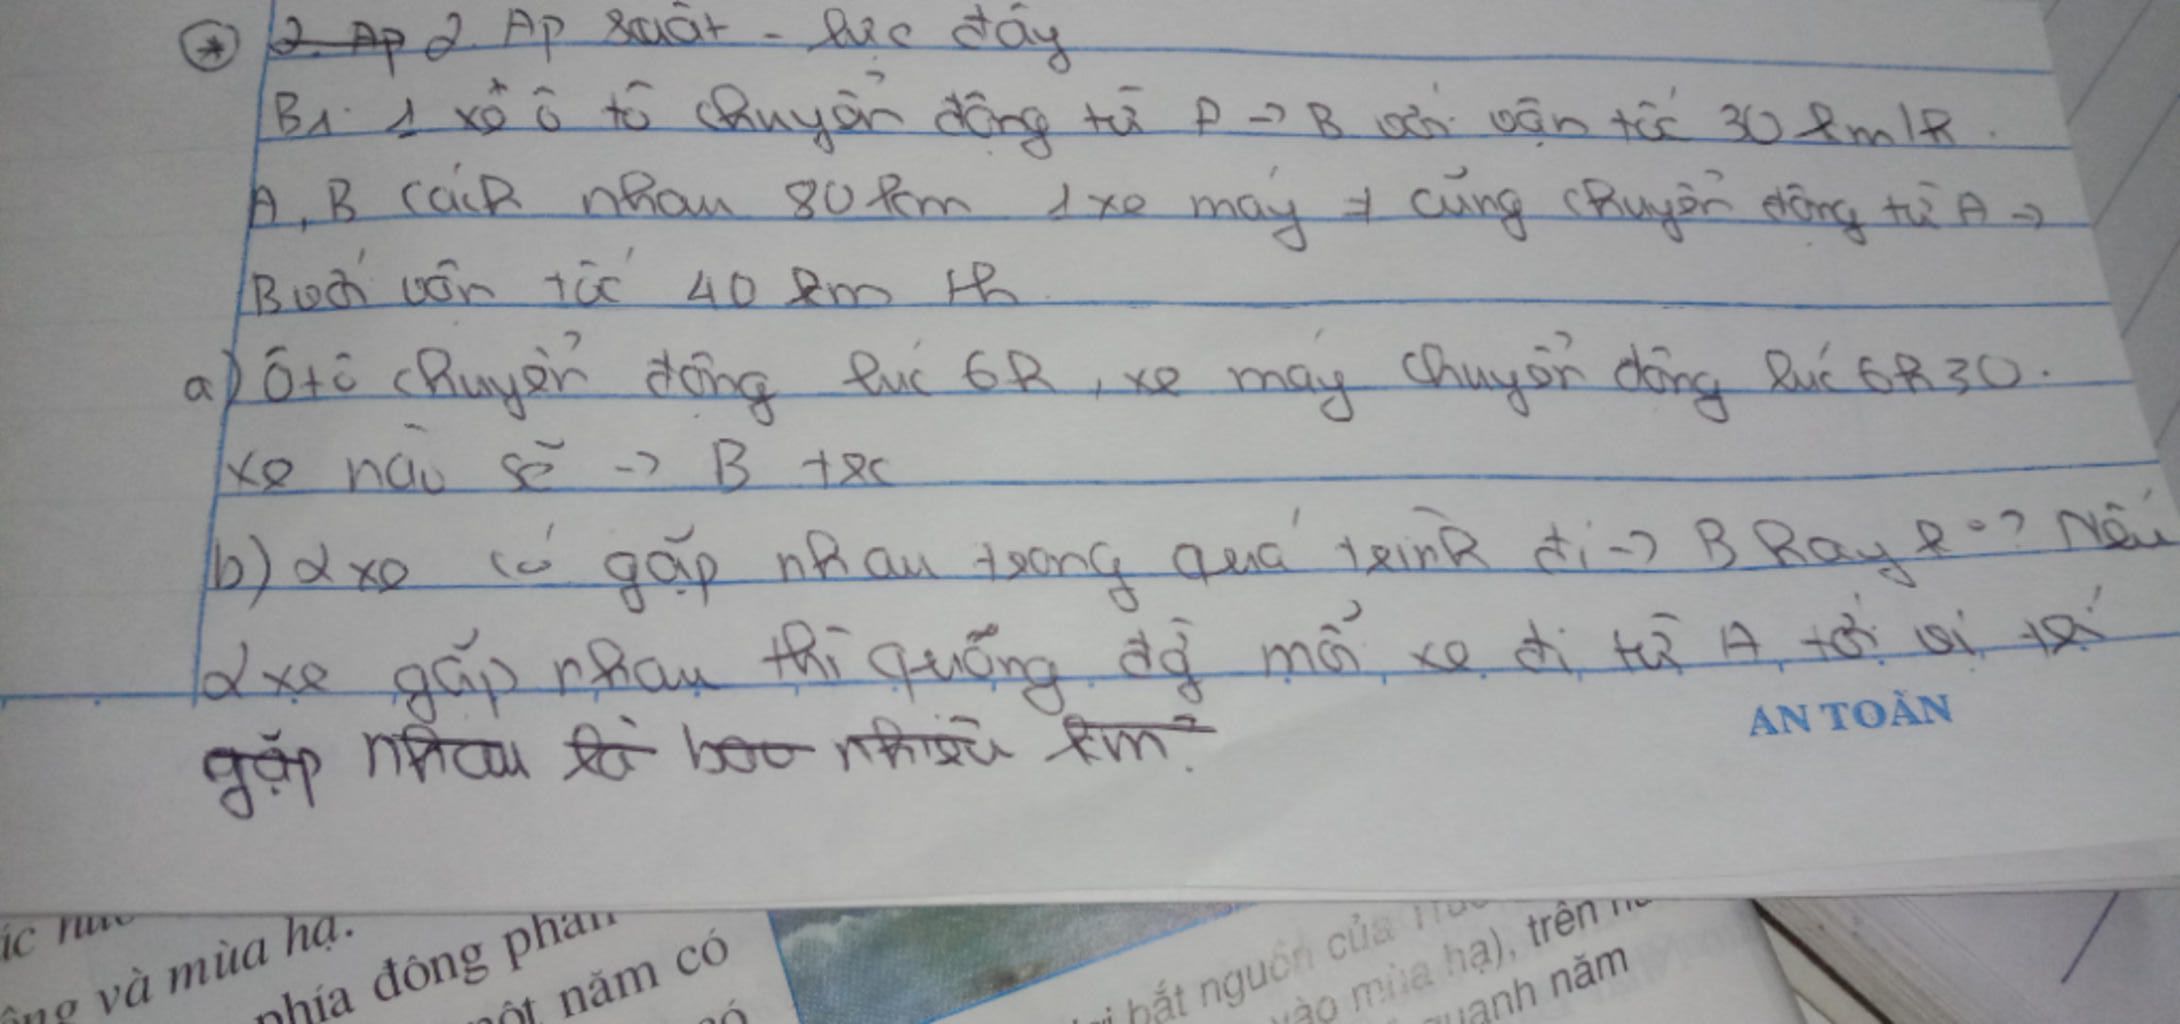 * 2. Ap 2. Áp suất - lực đẩy
B1. 1 xe ô tô chuyển động từ A -> B với vận tốc 30 km/h.
A, B cách nhau 80 km 1 xe máy cũng chuyển động từ A ->
B với vận tốc 40 km /h
a) Ôtô chuyển động lúc 6h, xe máy chuyển động lúc 6h30.
xe nào sẽ -> B trc
b) 2 xe có gặp nhau trong quá trình đi -> B hay k°? Nếu
2 xe gặp nhau thì quãng đg mỗi xe đi từ A tới vị trí
gặp nhau là bao nhiêu km?
AN TOÀN
và mùa hạ.
phía đông phần
năm có
bắt nguồn của
vào mùa hạ), trên
quanh năm